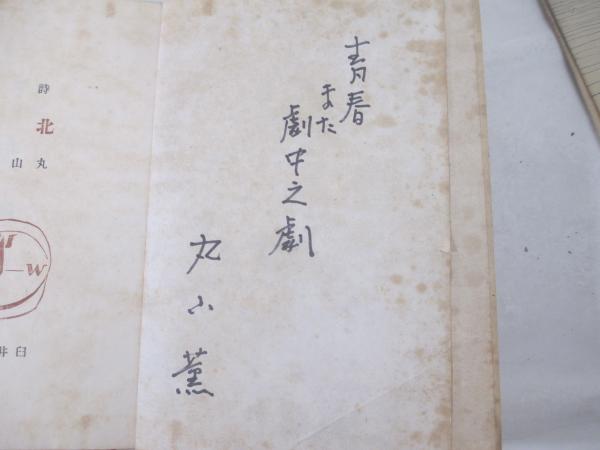 青春
また
劇中之劇
丸山薫
詩
北
丸山
W
臼井